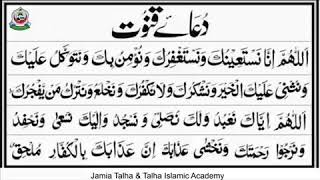 دُعَائے قُنُوت
اَللّٰهُمَّ اِنَّا نَسْتَعِيْنُكَ وَنَسْتَغْفِرُكَ وَنُؤْمِنُ بِكَ وَنَتَوَكَّلُ عَلَيْكَ
وَنُثْنِيْ عَلَيْكَ الْخَيْرَ وَنَشْكُرُكَ وَلَا نَكْفُرُكَ وَنَخْلَعُ وَنَتْرُكُ مَنْ يَّفْجُرُكَ
اَللّٰهُمَّ اِيَّاكَ نَعْبُدُ وَلَكَ نُصَلِّيْ وَنَسْجُدُ وَاِلَيْكَ نَسْعٰى وَنَحْفِدُ
وَنَرْجُوْا رَحْمَتَكَ وَنَخْشٰى عَذَابَكَ اِنَّ عَذَابَكَ بِالْكُفَّارِ مُلْحِقٌ
Jamia Talha & Talha Islamic Academy